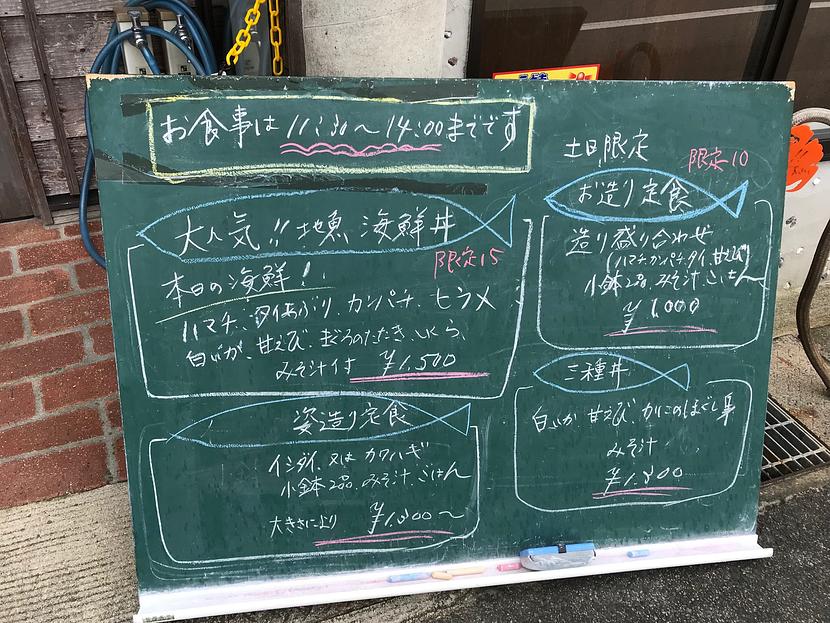 お食事は 11:30〜14:00までです
大人気!! 地魚 海鮮丼
限定15
本日の海鮮!
ハマチ、タイあぶり、カンパチ、ヒラメ
白いか、甘えび、まぐろのたたき、いくら、
みそ汁付 ¥1,500
姿造り定食
イシダイ、又は カワハギ
小鉢2品、みそ汁、ごはん
大きさにより
土日限定
限定10
お造り定食
造り盛り合わせ
(ハマチ カンパチ タイ 甘えび)
小鉢2品 みそ汁 ごはん
¥1,000
三種丼
白いか 甘えび、かにのほぐし身
みそ汁